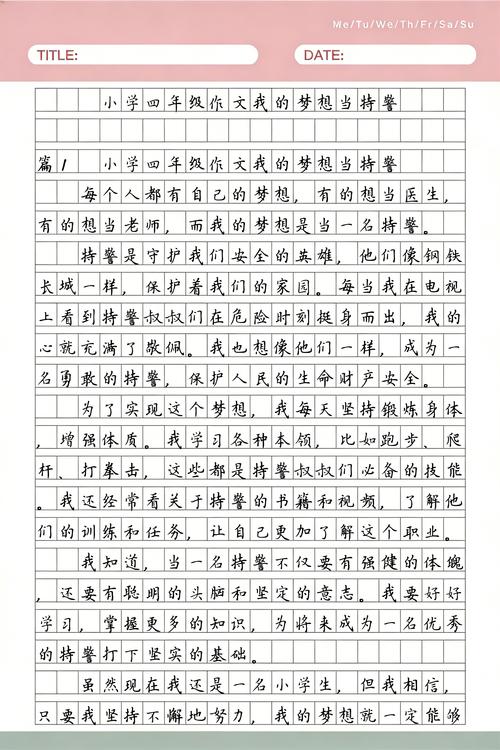 Me/Tu/We/Th/Fr/Sa/Su
TITLE:
DATE:
小学四年级作文我的梦想当特警
篇1 小学四年级作文我的梦想当特警
每个人都有自己的梦想，有的想当医生，
有的想当老师，而我的梦想是当一名特警。
特警是守护我们安全的英雄，他们像钢铁
长城一样，保护着我们的家园。每当我在电视
上看到特警叔叔们在危险时刻挺身而出，我的
心就充满了敬佩。我也想像他们一样，成为一
名勇敢的特警，保护人民的生命财产安全。
为了实现这个梦想，我每天坚持锻炼身体
，增强体质。我学习各种本领，比如跑步、爬
杆、打拳击，这些都是特警叔叔们必备的技能
。我还经常看关于特警的书籍和视频，了解他
们的训练和任务，让自己更加了解这个职业。
我知道，当一名特警不仅要有强健的体魄
，还要有聪明的头脑和坚定的意志。我要好好
学习，掌握更多的知识，为将来成为一名优秀
的特警打下坚实的基础。
虽然现在我还是一名小学生，但我相信，
只要我坚持不懈地努力，我的梦想就一定能够